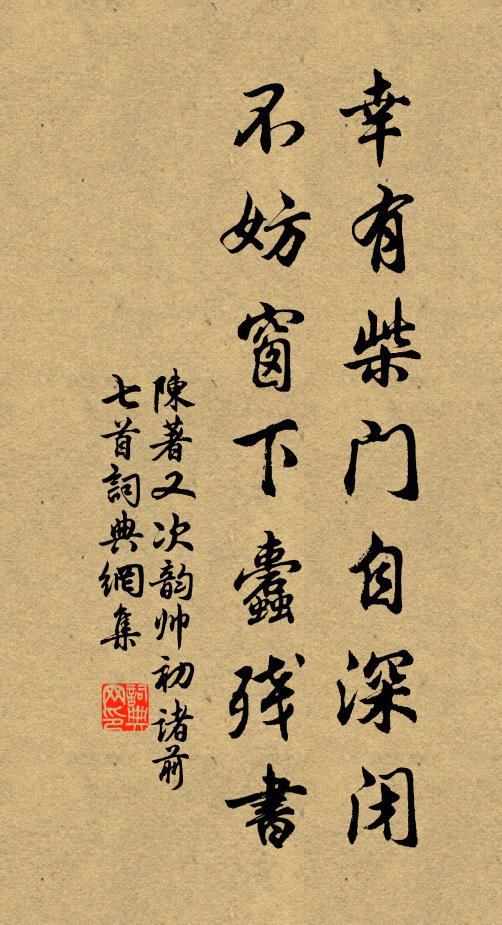 幸有柴门自深闭
不妨窗下蠹残書
陳著又次韵帅初诸前
七首詞典網集
詞典
网印